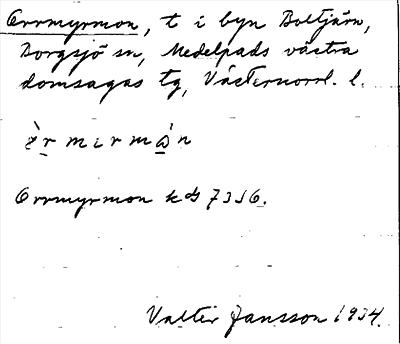 Orrmyrmon, t i byn Boltjärn,
Borgsjö sn, Medelpads västra
domsagas tg, Västernorrl. l.
Orrmyrmon
Valter Jansson 1934.